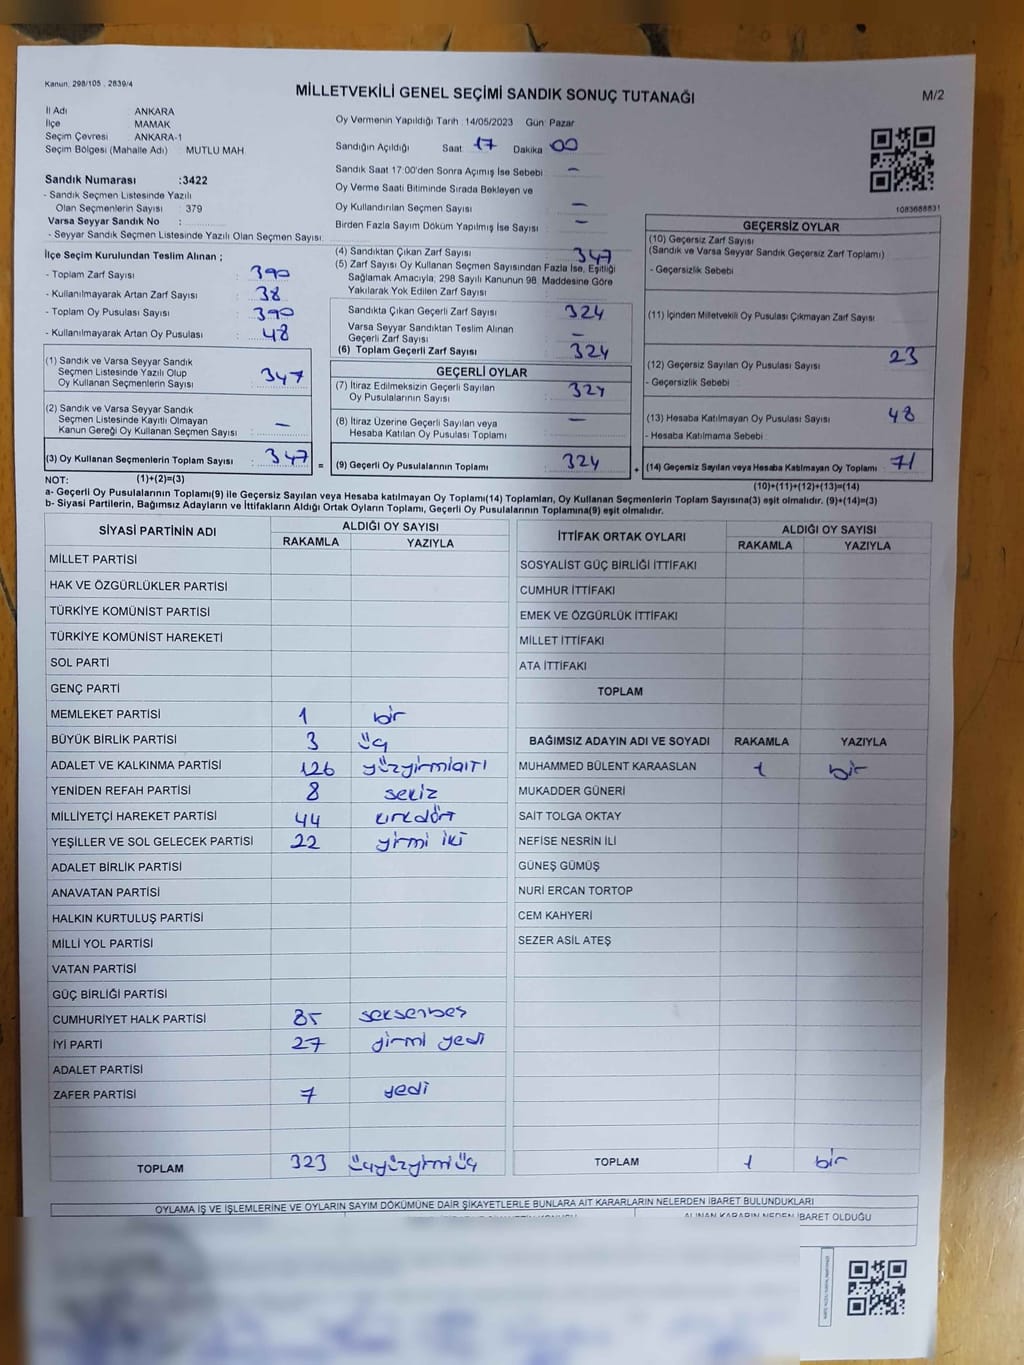 Kanun: 298/105 , 2839/4
MİLLETVEKİLİ GENEL SEÇİMİ SANDIK SONUÇ TUTANAĞI
M/2
İl Adı : ANKARA
İlçe : MAMAK
Seçim Çevresi : ANKARA-1
Seçim Bölgesi (Mahalle Adı) : MUTLU MAH.
Sandık Numarası :3422
- Sandık Seçmen Listesinde Yazılı
Olan Seçmenlerin Sayısı : 379
Varsa Seyyar Sandık No :
- Seyyar Sandık Seçmen Listesinde Yazılı Olan Seçmen Sayısı:
İlçe Seçim Kurulundan Teslim Alınan ;
- Toplam Zarf Sayısı : 390
- Kullanılmayarak Artan Zarf Sayısı : 38
- Toplam Oy Pusulası Sayısı : 390
- Kullanılmayarak Artan Oy Pusulası : 48
(1) Sandık ve Varsa Seyyar Sandık
Seçmen Listesinde Yazılı Olup
Oy Kullanan Seçmenlerin Sayısı : 347
(2) Sandık ve Varsa Seyyar Sandık
Seçmen Listesinde Kayıtlı Olmayan
Kanun Gereği Oy Kullanan Seçmen Sayısı : –
(3) Oy Kullanan Seçmenlerin Toplam Sayısı : 347
Oy Vermenin Yapıldığı Tarih :14/05/2023 Gün: Pazar
Sandığın Açıldığı Saat 17 Dakika 00
Sandık Saat 17:00'den Sonra Açımış İse Sebebi : –
Oy Verme Saati Bitiminde Sırada Bekleyen ve
Oy Kullandırılan Seçmen Sayısı : –
Birden Fazla Sayım Döküm Yapılmış İse Sayısı : –
(4) Sandıktan Çıkan Zarf Sayısı : 347
(5) Zarf Sayısı Oy Kullanan Seçmen Sayısından Fazla İse, Eşitliği
Sağlamak Amacıyla, 298 Sayılı Kanunun 98. Maddesine Göre
Yakılarak Yok Edilen Zarf Sayısı :
Sandıkta Çıkan Geçerli Zarf Sayısı : 324
Varsa Seyyar Sandıktan Teslim Alınan
Geçerli Zarf Sayısı : –
(6) Toplam Geçerli Zarf Sayısı : 324
GEÇERLİ OYLAR
(7) İtiraz Edilmeksizin Geçerli Sayılan
Oy Pusulalarının Sayısı : 324
(8) İtiraz Üzerine Geçerli Sayılan veya
Hesaba Katılan Oy Pusulası Toplamı : –
= (9) Geçerli Oy Pusulalarının Toplamı : 324
1083688831
GEÇERSİZ OYLAR
(10) Geçersiz Zarf Sayısı
(Sandık ve Varsa Seyyar Sandık Geçersiz Zarf Toplamı) :
- Geçersizlik Sebebi :
(11) İçinden Milletvekili Oy Pusulası Çıkmayan Zarf Sayısı:
(12) Geçersiz Sayılan Oy Pusulası Sayısı : 23
- Geçersizlik Sebebi :
(13) Hesaba Katılmayan Oy Pusulası Sayısı : 48
- Hesaba Katılmama Sebebi :
+ (14) Geçersiz Sayılan veya Hesaba Katılmayan Oy Toplamı : 71
NOT: (1)+(2)=(3) (10)+(11)+(12)+(13)=(14)
a- Geçerli Oy Pusulalarının Toplamı(9) ile Geçersiz Sayılan veya Hesaba katılmayan Oy Toplamı(14) Toplamları, Oy Kullanan Seçmenlerin Toplam Sayısına(3) eşit olmalıdır. (9)+(14)=(3)
b- Siyasi Partilerin, Bağımsız Adayların ve İttifakların Aldığı Ortak Oyların Toplamı, Geçerli Oy Pusulalarının Toplamına(9) eşit olmalıdır.
SİYASİ PARTİNİN ADI ALDIĞI OY SAYISI
RAKAMLA YAZIYLA
MİLLET PARTİSİ
HAK VE ÖZGÜRLÜKLER PARTİSİ
TÜRKİYE KOMÜNİST PARTİSİ
TÜRKİYE KOMÜNİST HAREKETİ
SOL PARTİ
GENÇ PARTİ
MEMLEKET PARTİSİ 1 bir
BÜYÜK BİRLİK PARTİSİ 3 üç
ADALET VE KALKINMA PARTİSİ 126 yüzyirmialtı
YENİDEN REFAH PARTİSİ 8 sekiz
MİLLİYETÇİ HAREKET PARTİSİ 44 kırkdört
YEŞİLLER VE SOL GELECEK PARTİSİ 22 yirmi iki
ADALET BİRLİK PARTİSİ
ANAVATAN PARTİSİ
HALKIN KURTULUŞ PARTİSİ
MİLLİ YOL PARTİSİ
VATAN PARTİSİ
GÜÇ BİRLİĞİ PARTİSİ
CUMHURİYET HALK PARTİSİ 85 seksenbeş
İYİ PARTİ 27 yirmi yedi
ADALET PARTİSİ
ZAFER PARTİSİ 7 yedi
TOPLAM 323 üçyüzyirmiüç
İTTİFAK ORTAK OYLARI ALDIĞI OY SAYISI
RAKAMLA YAZIYLA
SOSYALİST GÜÇ BİRLİĞİ İTTİFAKI
CUMHUR İTTİFAKI
EMEK VE ÖZGÜRLÜK İTTİFAKI
MİLLET İTTİFAKI
ATA İTTİFAKI
TOPLAM
BAĞIMSIZ ADAYIN ADI VE SOYADI RAKAMLA YAZIYLA
MUHAMMED BÜLENT KARAASLAN 1 bir
MUKADDER GÜNERİ
SAİT TOLGA OKTAY
NEFİSE NESRİN İLİ
GÜNEŞ GÜMÜŞ
NURİ ERCAN TORTOP
CEM KAHYERİ
SEZER ASİL ATEŞ
TOPLAM 1 bir
OYLAMA İŞ VE İŞLEMLERİNE VE OYLARIN SAYIM DÖKÜMÜNE DAİR ŞİKAYETLERLE BUNLARA AİT KARARLARIN NELERDEN İBARET BULUNDUKLARI
ALINAN KARARIN NEDEN İBARET OLDUĞU